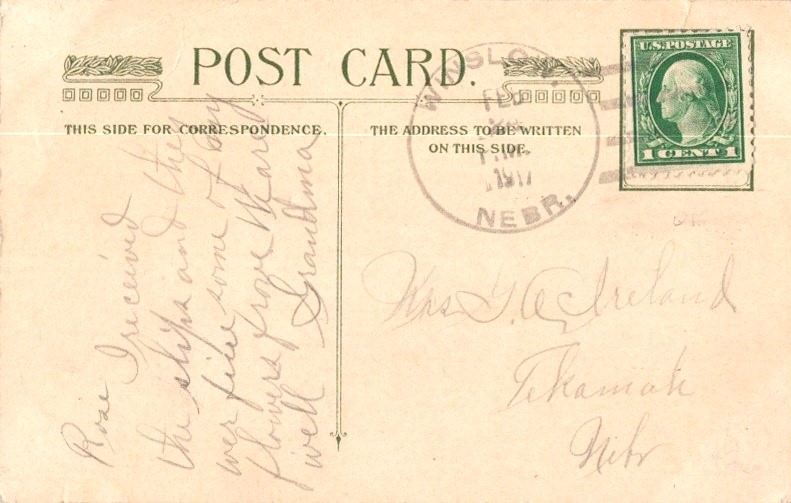 POST CARD.
THIS SIDE FOR CORRESPONDENCE.
THE ADDRESS TO BE WRITTEN
ON THIS SIDE.
U.S. POSTAGE
1 CENT 1
WINSLOW
FEB
1917
NEBR.
Rose I received
the slips and they
wer fine some of my
flowers froze Mary
well Grandma
Mrs G. A. Ireland
Tekamah
Nebr